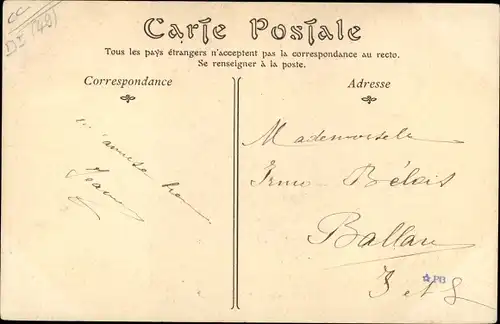 CC
DI (49)
Carte Postale
Tous les pays étrangers n'acceptent pas la correspondance au recto.
Se renseigner à la poste.
Correspondance
Adresse
Mademoiselle
Irma Bélois
Ballan
I et L
PB